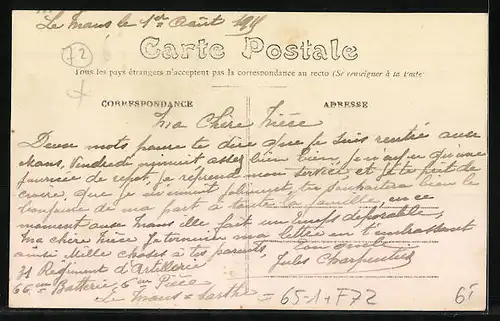 Le Mans le 1er Août 191
72
Carte Postale
Tous les pays étrangers n'acceptent pas la correspondance au recto (Se renseigner à la Poste
CORRESPONDANCE
ADRESSE
Ma Chère Nièce
Deux mots pour te dire que je suis rentré aux
Mans, Vendredi minuit assez bien, je n'ai eu qu'une
journée de repot, je reprend mon service et
que je
de ma part à toute la famille, en ce
moment aux Mans ille fait un temps deporable,
Ma chère Nièce Je termine ma lettre en t'embrassant
ainsi Mille choses à tes parents, ton oncle
31 Régiment d'Artillerie Jules Charpentier
66eme Batterie, 6eme Pièce
Le Mans = Sarthe = 65-1+F72
6f